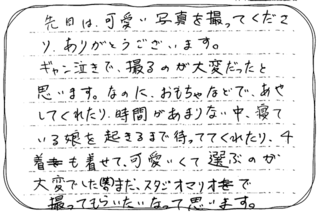 先日は、可愛い写真を撮ってくださ
り、ありがとうございます。
ギャン泣きで、撮るのが大変だったと
思います。なのに、おもちゃなどで、あや
してくれたり、時間があまりない中、寝て
いる娘を起きるまで待っててくれたり、4
着も着せて、可愛いくて選ぶのが
大変でした(笑)まだ、スタジオマリオで
撮ってもらいたいなって思います。